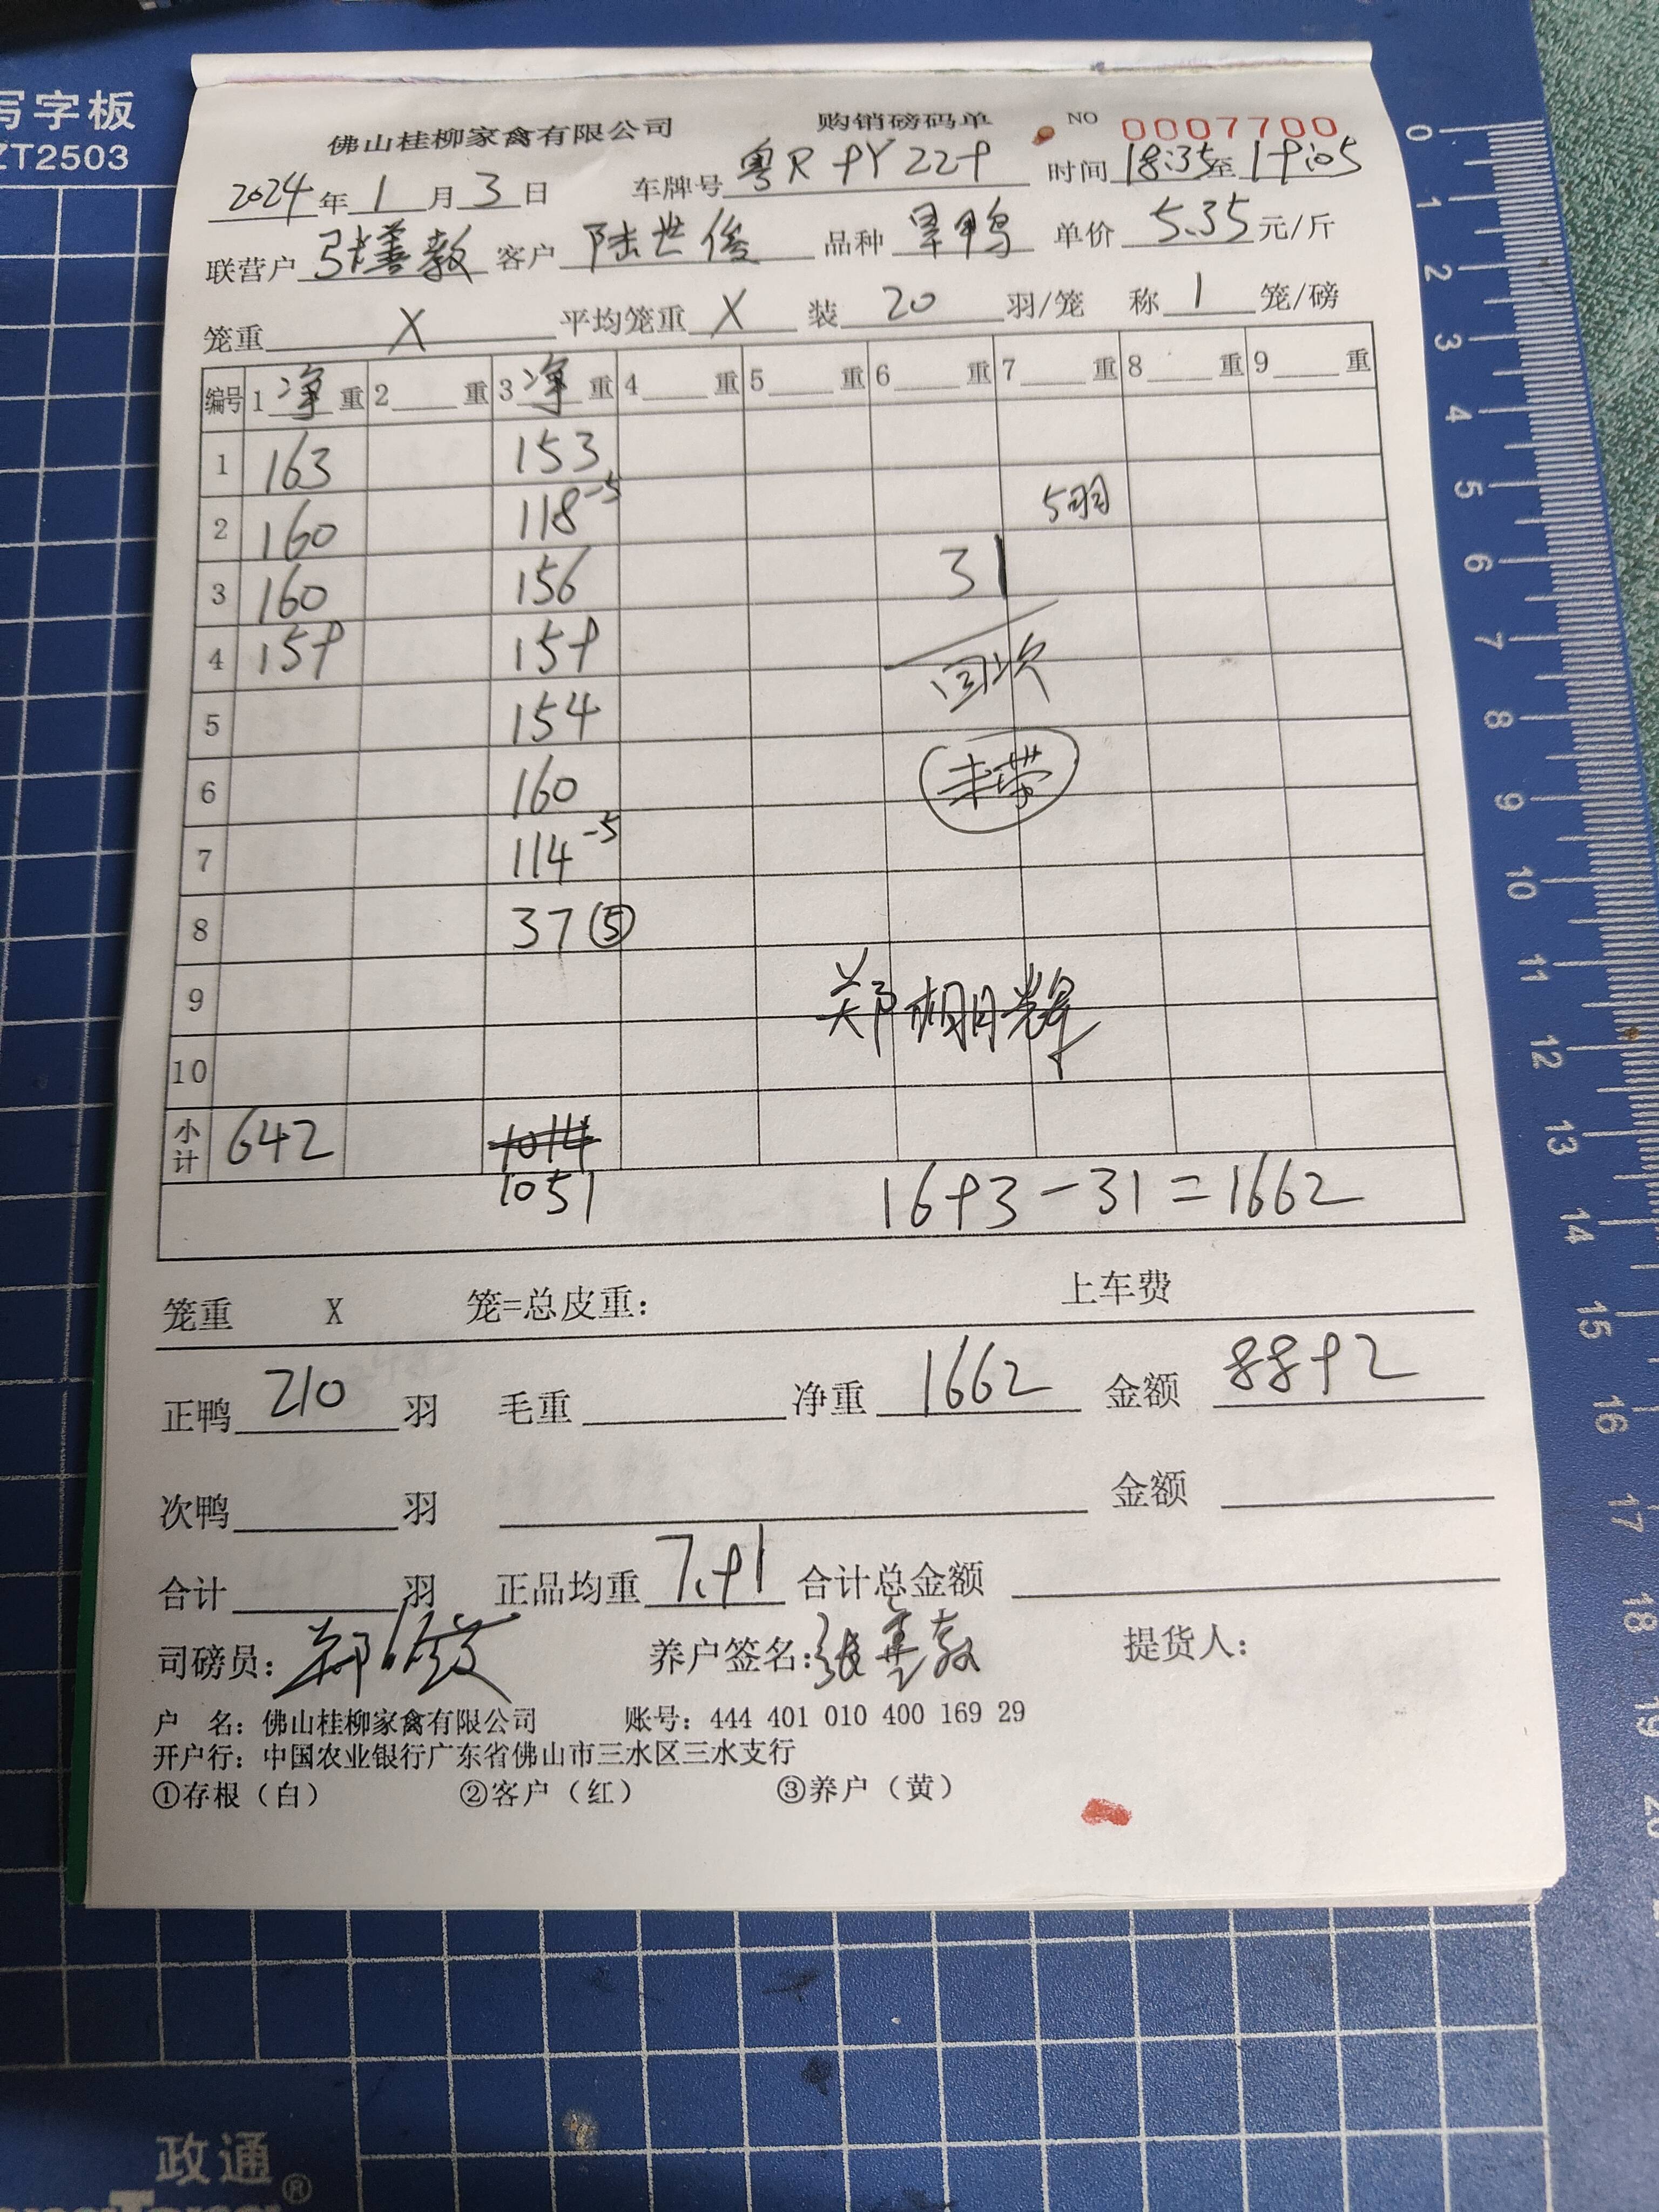 写字板
ZT2503
佛山桂柳家禽有限公司 购销磅码单 NO 0007700
2024年1月3日 车牌号 粤R9Y229 时间18:35至19:05
联营户 张善教 客户 陆世俊 品种 旱鸭 单价 5.35元/斤
笼重 X 平均笼重 X 装 20 羽/笼 称 1 笼/磅
编号 1 净 重 2 重 3 净 重 4 重 5 重 6 重 7 重 8 重 9 重
1 163 153
2 160 118-5 5羽
3 160 156 31
4 159 159 回次
5 154
6 160 未带
7 114-5
8 37⑤
9 郑棚辉
10
小计 642 1014
1051 1693-31=1662
笼重 X 笼=总皮重： 上车费
正鸭 210 羽 毛重 净重 1662 金额 8892
次鸭 羽 金额
合计 羽 正品均重 7.91 合计总金额
司磅员： 养户签名：张善教 提货人：
户 名：佛山桂柳家禽有限公司 账号：444 401 010 400 169 29
开户行：中国农业银行广东省佛山市三水区三水支行
①存根（白） ②客户（红） ③养户（黄）
0
1
2
3
4
5
6
7
8
9
10
11
12
13
14
15
16
17
18
19
20
政通®